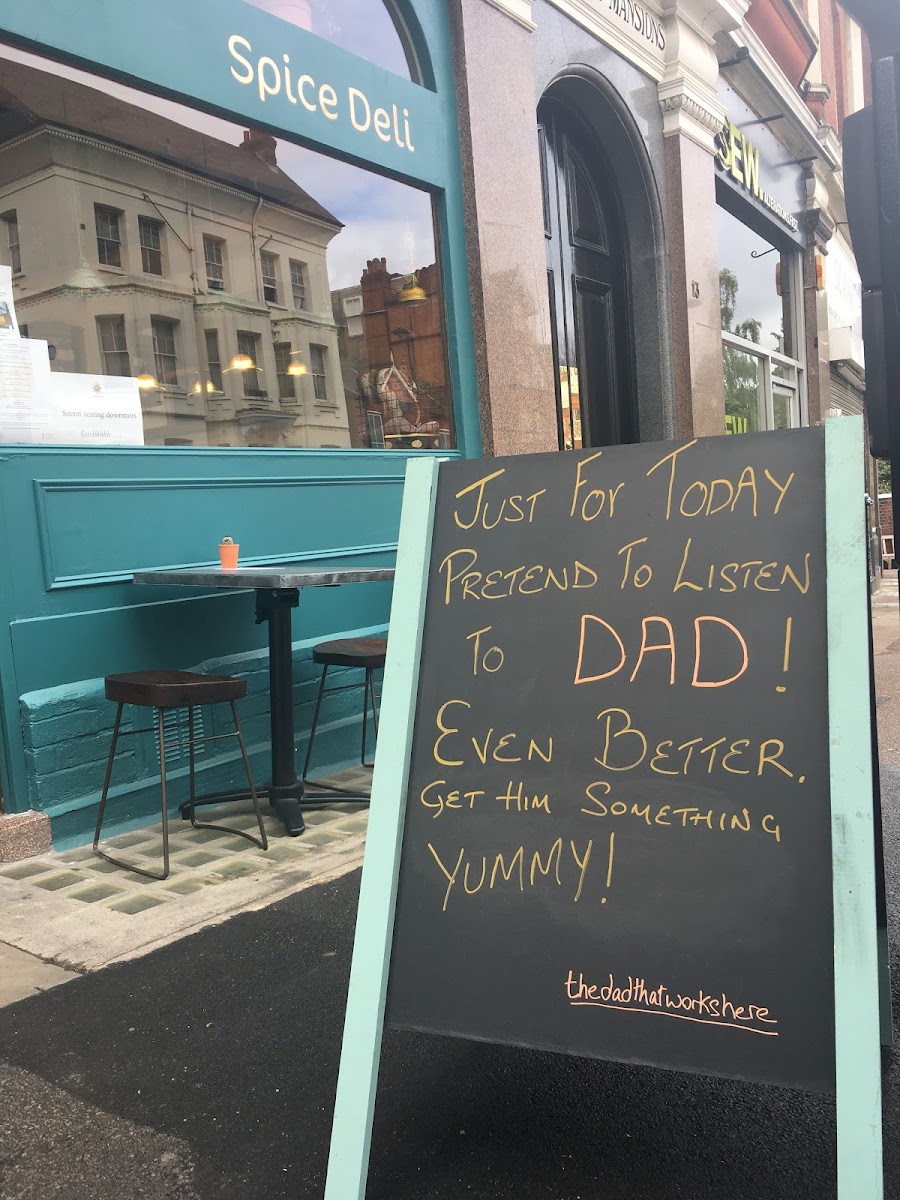 MANSIONS
Spice Deli
SEW
13
Secret seating downstairs
JUST FOR TODAY
PRETEND TO LISTEN
TO DAD!
EVEN BETTER.
GET HIM SOMETHING
YUMMY!
thedadthatworkshere